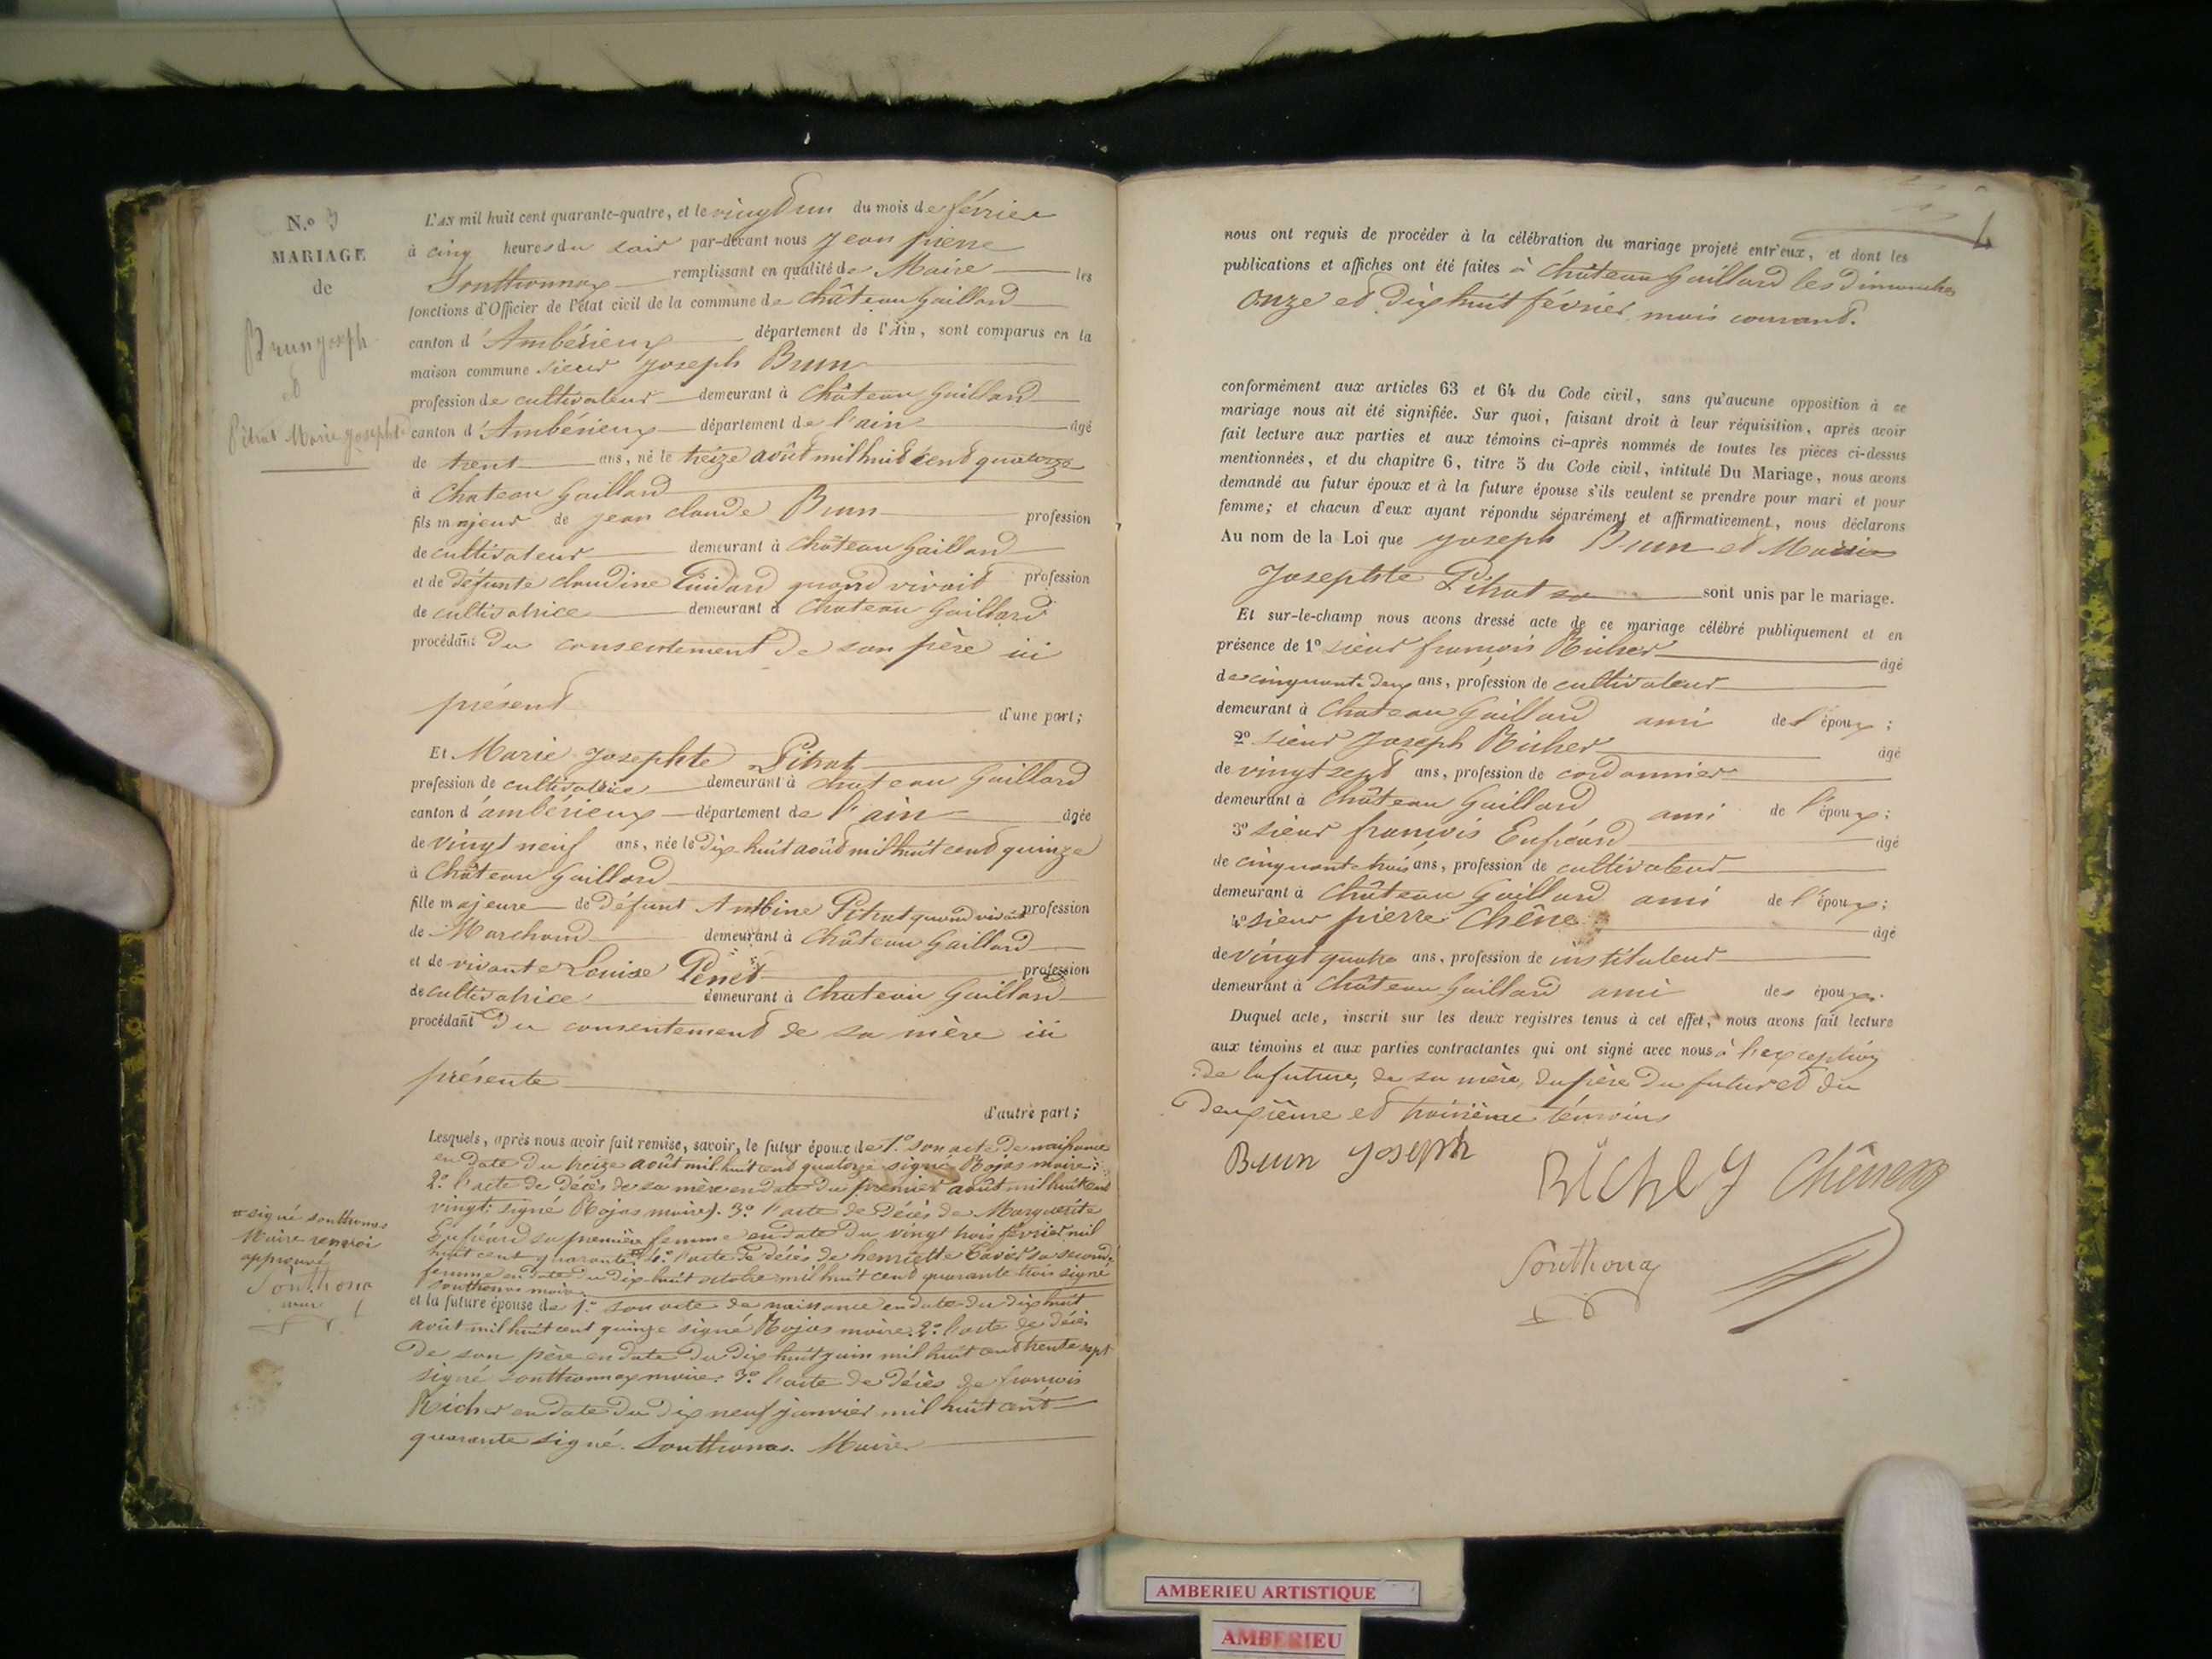 N.o 3
MARIAGE
de
Brun joseph
et
Pitrat Marie josephte
L'AN mil huit cent quarante-quatre, et le vingt un du mois de février
à cinq heures du soir par-devant nous jean pierre
Southonnax remplissant en qualité de Maire les
fonctions d'Officier de l'état civil de la commune de château gaillard
canton d'Ambérieux département de l'Ain, sont comparus en la
maison commune sieur joseph Brun
profession de cultivateur demeurant à château gaillard
canton d'Ambérieux département de l'ain âgé
de trent ans, né le treize août mil huit cent quatorze
à Chateau gaillard
fils majeur de jean claude Brun profession
de cultivateur demeurant à château gaillard
et de défunte claudine quand vivait profession
de cultivatrice demeurant à chateau gaillard
procédant du consentement de son père ici
présent d'une part;
Et Marie josephte Pitrat
profession de cultivatrice demeurant à chateau gaillard
canton d'ambérieux département de l'ain âgée
de vingt neuf ans, née le dix-huit août mil huit cent quinze
à Château gaillard
fille majeure de défunt Anthine Pitrat quand vivait profession
de Marchand demeurant à château gaillard
et de vivante Louise Penet profession
de cultivatrice demeurant à chateau gaillard
procédant du consentement de sa mère ici
présente
d'autre part;
Lesquels, après nous avoir fait remise, savoir, le futur époux de 1.o son acte de naissance
en date du treize août mil huit cent quatorze signé Rojas maire;
2.o l'acte de décès de sa mère en date du premier août mil huit cent
vingt; signé Rojas maire). 3.o l'acte de décès de Marguerite
Enféard sa première femme en date du vingt trois février mil
huit cent quarante 4.o l'acte de décès de henriette sa seconde
femme en date du dix-huit octobre mil huit cent quarante trois signé
Southonax maire
¤ signé southonax
Maire renvoi
approuvé
Southona
maire
et la future épouse de 1.o son acte de naissance en date du dix huit
août mil huit cent quinze signé Rojas maire. 2.o l'acte de décès
de son père en date du dix huit juin mil huit cent trente sept
signé southonnax maire. 3.o l'acte de décès de françois
Richer en date du dix neuf janvier mil huit cent
quarante signé. Southonax. Maire
nous ont requis de procéder à la célébration du mariage projeté entr'eux, et dont les
publications et affiches ont été faites à château gaillard les dimanches
onze et dix huit février mois courant.
conformément aux articles 63 et 64 du Code civil, sans qu'aucune opposition à ce
mariage nous ait été signifiée. Sur quoi, faisant droit à leur réquisition, après avoir
fait lecture aux parties et aux témoins ci-après nommés de toutes les pièces ci-dessus
mentionnées, et du chapitre 6, titre 5 du Code civil, intitulé Du Mariage, nous avons
demandé au futur époux et à la future épouse s'ils veulent se prendre pour mari et pour
femme; et chacun d'eux ayant répondu séparément et affirmativement, nous déclarons
Au nom de la Loi que joseph Brun et Marie
Josephte Pitrat sont unis par le mariage.
Et sur-le-champ nous avons dressé acte de ce mariage célébré publiquement et en
présence de 1o sieur françois Richer âgé
de cinquante deux ans, profession de cultivateur
demeurant à Chateau gaillard ami de l'époux;
2o sieur joseph Richer âgé
de vingt sept ans, profession de cordonnier
demeurant à château gaillard ami de l'époux;
3o sieur françois Enféard âgé
de cinquante trois ans, profession de cultivateur
demeurant à château gaillard ami de l'époux;
4o sieur pierre Chêne âgé
de vingt quatre ans, profession de instituteur
demeurant à château gaillard ami des époux.
Duquel acte, inscrit sur les deux registres tenus à cet effet, nous avons fait lecture
aux témoins et aux parties contractantes qui ont signé avec nous à l'exception
de la future, de sa mère, du père du futur et du
deuxième et troisième témoins
Brun joseph
Southonax
AMBERIEU ARTISTIQUE
AMBERIEU